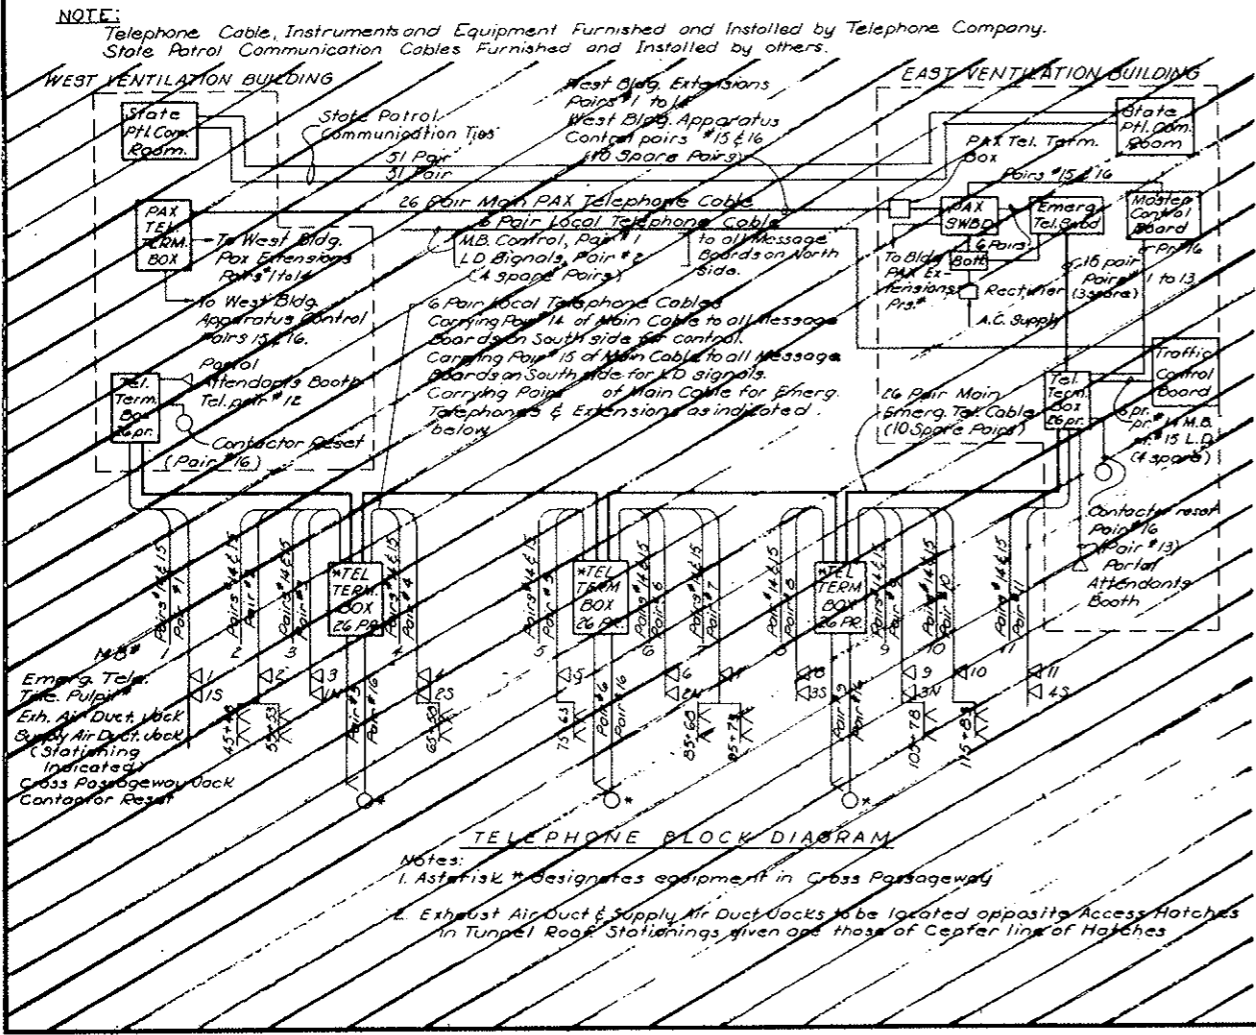 NOTE:
Telephone Cable, Instruments and Equipment Furnished and Installed by Telephone Company.
State Patrol Communication Cables Furnished and Installed by others.
WEST VENTILATION BUILDING
State
Ptl. Com.
Room.
State Patrol
Communication Ties
51 Pair
51 Pair
West Bldg. Extensions
Pairs #1 to 14
West Bldg. Apparatus
Control pairs #15 & 16
(10 Spare Pairs)
EAST VENTILATION BUILDING
State
Ptl. Com.
Room
PAX Tel. Term.
Box
Pairs #15 & 16
26 Pair Main PAX Telephone Cable
6 Pair Local Telephone Cable
PAX
TEL
TERM.
BOX
To West Bldg.
Pax Extensions
Pairs #1 to 14
To West Bldg.
Apparatus Control
Pairs 15 & 16.
M.B. Control, Pair #1
L.D. Signals, Pair #2
(4 spare Pairs)
to all Message
Boards on North
side.
PAX
SWBD.
Emerg.
Tel. Swbd
Master
Control
Board
Pr. #16
6 Pairs
Batt.
To Bldg.
PAX Ex-
tensions
Prs. #
Rectifier
A.C. Supply
16 pair
Pairs #
(3 spare)
1 to 13
6 Pair Local Telephone Cables
Carrying Pair #14 of Main Cable to all Message
Boards on South side for control.
Carrying Pair #15 of Main Cable to all Message
Boards on South side for L.D. signals.
Carrying Pairs of Main Cable for Emerg.
Telephones & Extensions as indicated
below
Tel.
Term.
Box
26 pr.
Portal
Attendant's Booth
Tel. pair #12
Contactor Reset
(Pair #16)
26 Pair Main
Emerg. Tel. Cable
(10 Spare Pairs)
Tel.
Term.
Box
26 pr.
Traffic
Control
Board
6 pr.
pr. #14 M.B.
pr. #15 L.D.
(4 spare)
Contactor reset
Pair #16
(Pair #13)
Portal
Attendants
Booth
Pairs #14 & 15
Pair #1
Pairs #14 & 15
Pair #2
Pairs #14 & 15
Pair #3
*TEL
TERM.
BOX
26 PR.
Pairs #14 & 15
Pair #4
Pairs #14 & 15
Pair #5
*TEL
TERM
BOX
26 PR.
Pairs #14 & 15
Pair #6
Pairs #14 & 15
Pair #7
Pairs #14 & 15
Pair #8
*TEL
TERM
BOX
26 PR.
Pairs #14 & 15
Pair #9
Pairs #14 & 15
Pair #10
Pairs #14 & 15
Pair #11
M.B. # 1 2 3 4 5 6 7 8 9 10 11
Emerg. Tele. 1 2 3 4 5 6 7 8 9 10 11
Tele. Pulpit # 1S 1N 2S 2N 3S 3N 4S
Exh. Air Duct. Jack
Supply Air Duct. Jack
(Stationing
Indicated)
Cross Passageway Jack
Contactor Reset
Pair #3
Pair #16
Pair #6
Pair #16
Pair #9
Pair #16
TELEPHONE BLOCK DIAGRAM
Notes:
1. Asterisk * designates equipment in Cross Passageway
2. Exhaust Air Duct & Supply Air Duct Jacks to be located opposite Access Hatches
in Tunnel Roof. Stationings given are those of Center line of Hatches